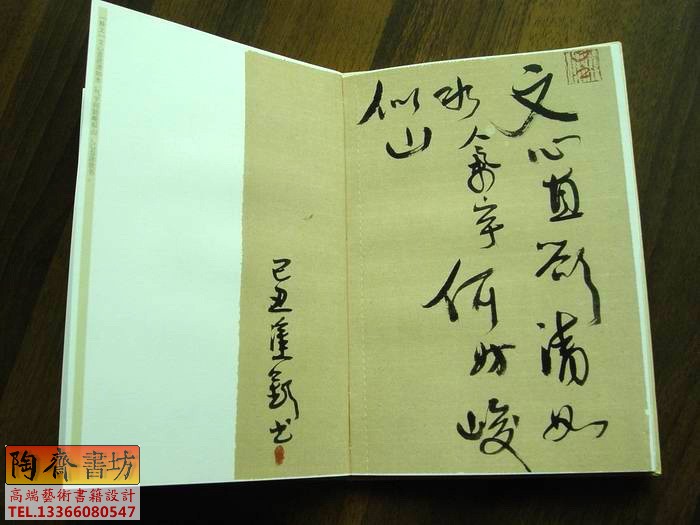 文心直欲清如
水氣宇何妨峻
似山
己丑
书
陶齋書坊
高端藝術書籍設計
TEL.13366080547